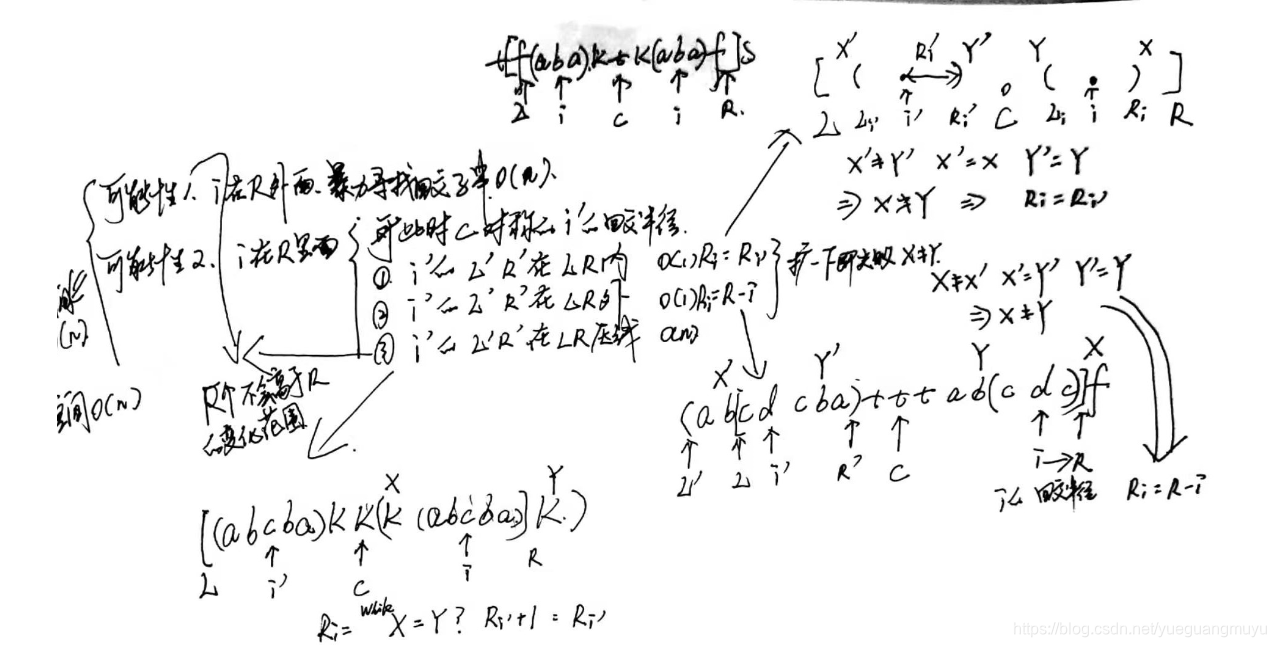 t[f(aba)k t k(aba)f]s
L i C i R.
X' Ri' Y' Y X
[ ( ) ( ) ]
L Li' i' Ri' C Li i Ri R
X'≠Y' X'=X Y'=Y
⇒ X≠Y ⇒ Ri=Ri'
可能性1. i在R外面.暴力寻找回文子串.O(n).
可能性2. i在R里面
可此时C对称 i' 回文半径.
① i' L'R'在LR内 O(1)Ri=Ri'
② i' L'R'在LR外 O(1)Ri=R-i
③ i' L'R'在LR压线 O(n)
扩一下 X≠Y.
X≠X' X'=Y' Y'=Y
⇒ X≠Y
(n)
空间O(n)
R个不会高于R
变化范围
X' Y' Y X
(a b[c d c b a) t t t a b(c d c)]f
L' L i' R' C i→R
i 回文半径 Ri=R-i
X Y
[(abcba)k K(k (abcba)]K.)
L i' C i R
Ri= while X=Y? Ri'+1=Ri'
https://blog.csdn.net/yueguangmuyu